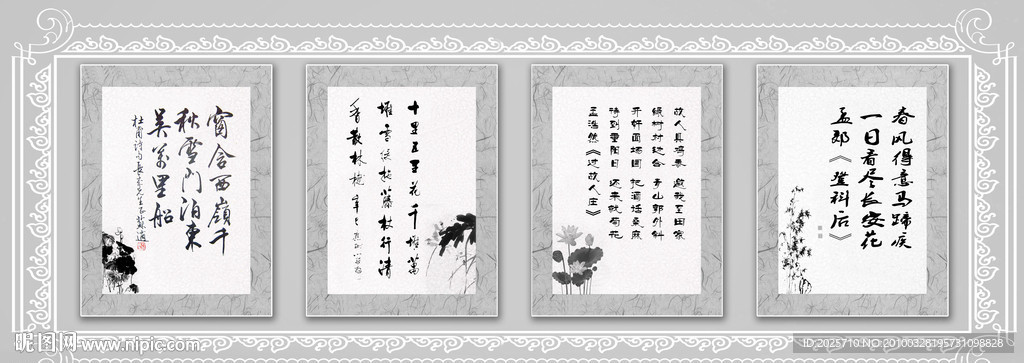 窗含西嶺千
秋雪門泊東
吳萬里船
杜甫詩句
十里五里花千堆萬
堆雪從拖藤杖行清
香散林樾
故人具鸡黍 邀我至田家
绿树村边合 青山郭外斜
开轩面场圃 把酒话桑麻
待到重阳日 还来就菊花
孟浩然《过故人庄》
春风得意马蹄疾
一日看尽长安花
孟郊《登科后》
昵图网 www.nipic.com
ID:2025710 NO:20100328195731098828